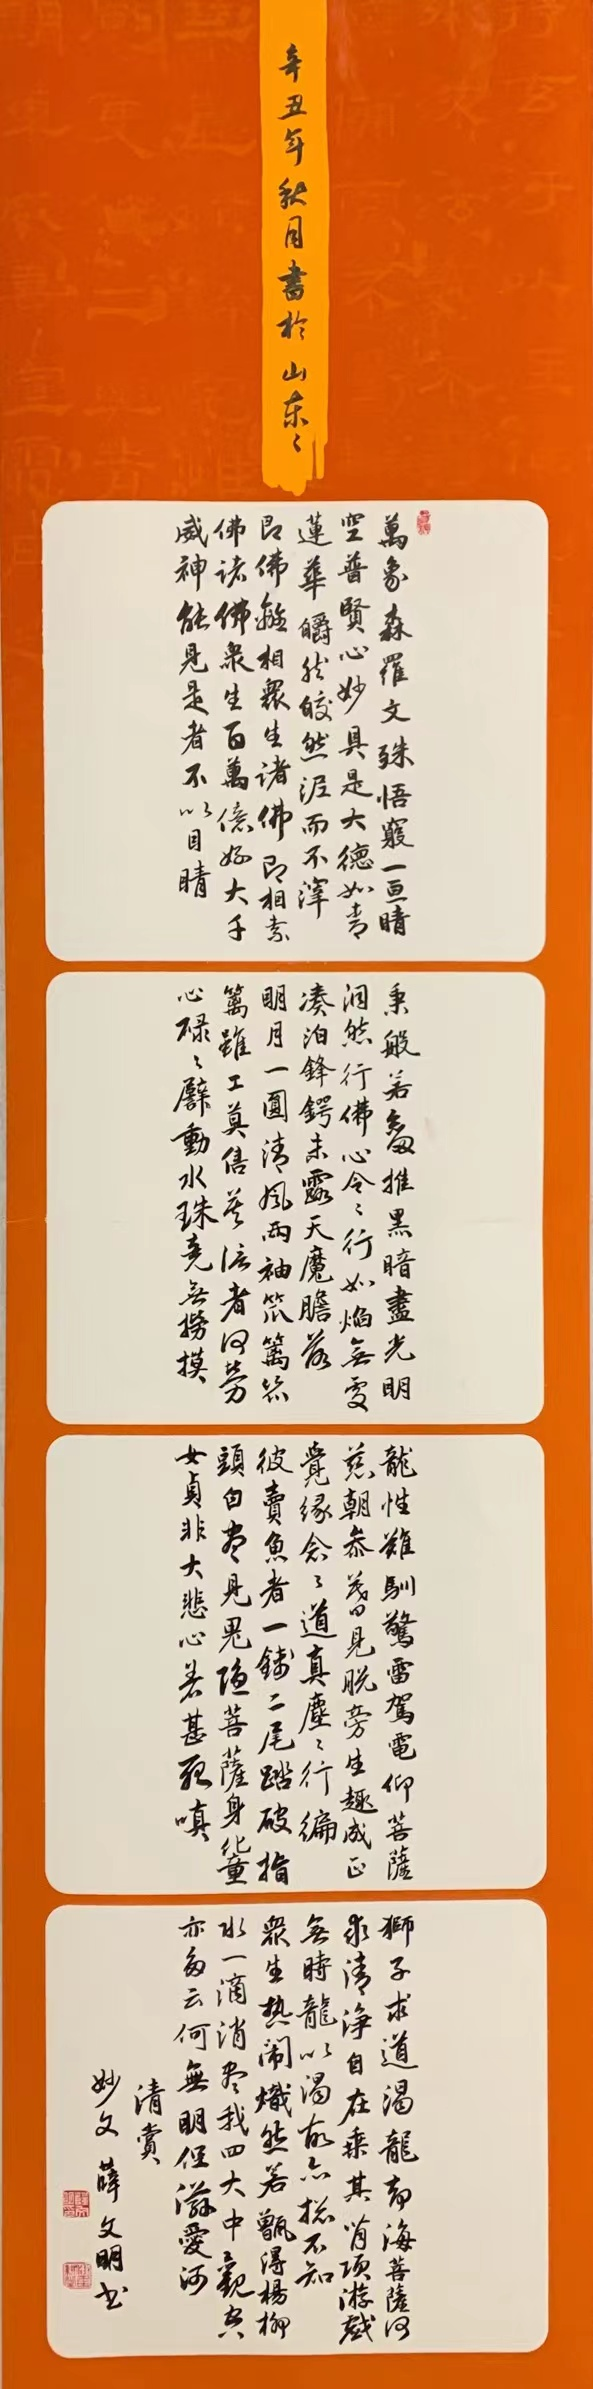 辛丑年秋月書於山东〻
萬象森羅文殊悟窾一亘晴
空普賢心妙具是大德如青
蓮華皭然皎然泥而不滓
即佛無相眾生諸佛即相素
佛諸佛眾生百萬億好大手
威神能見是者不以目睛
秉般若劔推黑暗盡光明
洞然行佛心令〻行如焰無處
湊泊鋒鍔未露天魔膽落
明月一圓清風兩袖笊篱笊
篱雖工莫售若信者何勞
心碌〻擊動水珠竟無撈摸
龍性難馴驚雷駕電仰菩薩
慈朝恭暮見脱旁生趣成正
覺緣念〻道真塵〻行徧
彼賣魚者一錢二尾踏破指
頭自尋見鬼隐菩薩身化童
女貞非大悲心若甚死嗔
獅子求道渴龍奔海菩薩何
求清净自在乘其背項游戲
無時龍以渴故亦捴不知
眾生热闹熾然若甑得楊柳
水一滴消尽我四大中觀貪
亦多云何無明但滋愛河
清賞
妙文 薛文明书